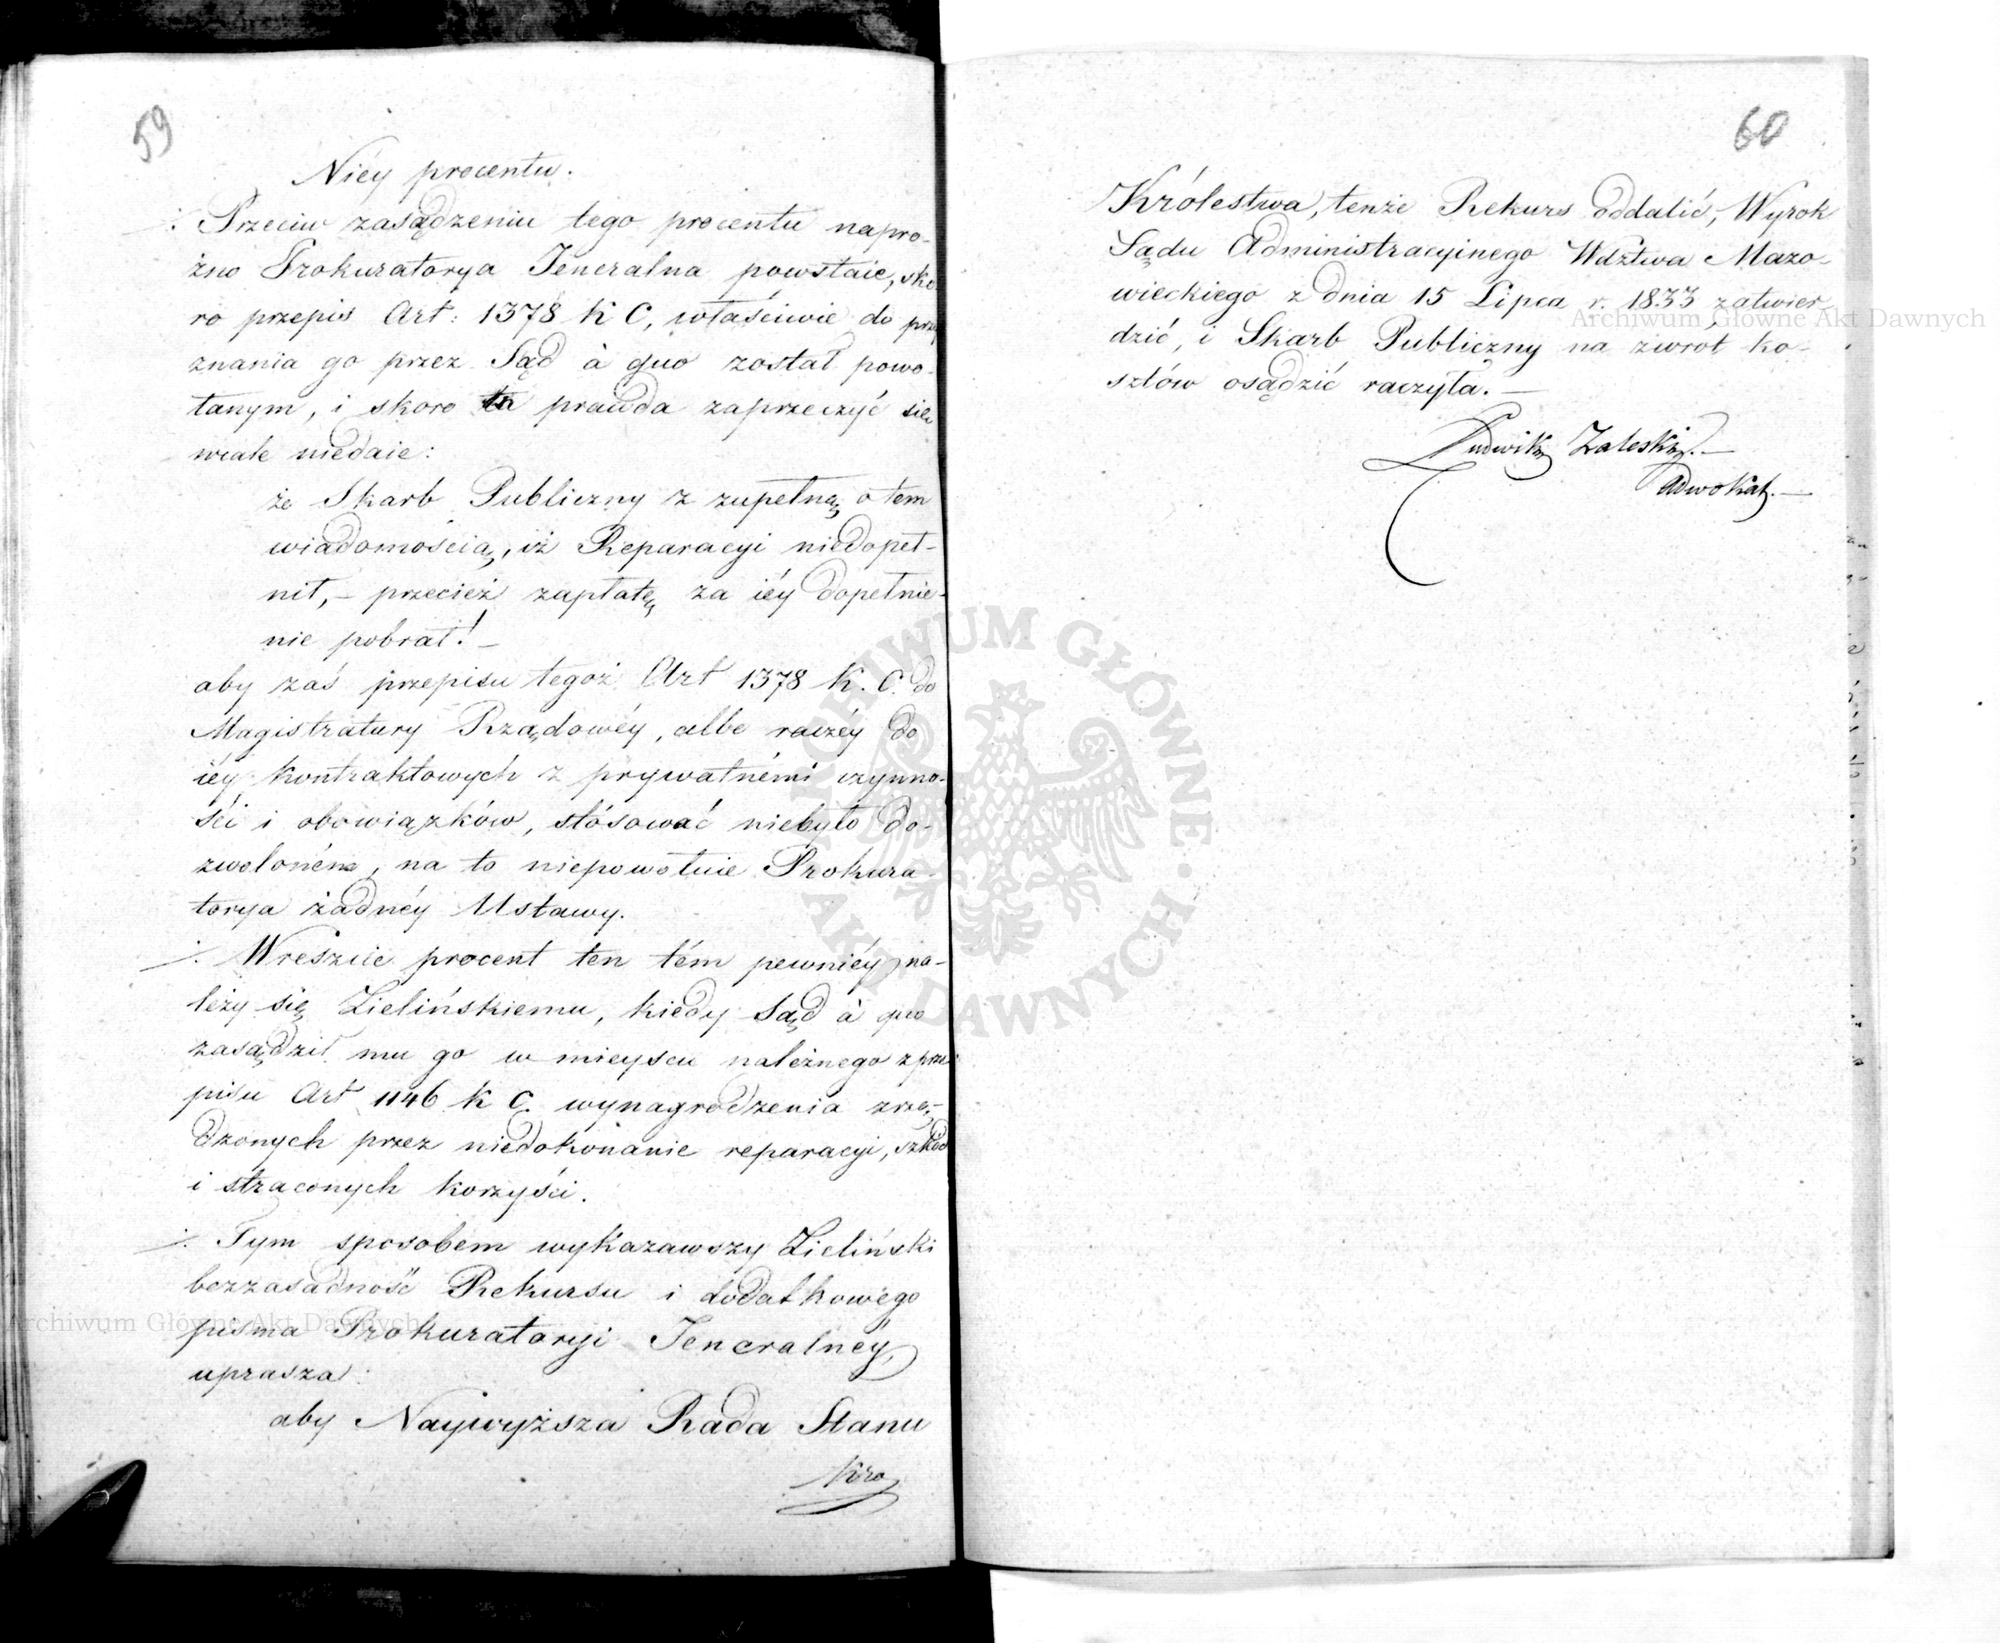 59
Niéy procentu.
Przeciw zasądzeniu tego procentu napró-
żno Prokuratorya Jeneralna powstaie, sko-
ro przepis Art: 1378 K C, właściwie do przy
znania go przez Sąd à quo został powo-
łanym, i skoro ta prawda zaprzeczyć się
wcale niedaie:
że Skarb Publiczny z zupełną o tem
wiadomością, iż Reparacyi niedopeł-
nił, – przecież zapłatę za iéy dopełnie-
nie pobrał! –
aby zaś przepisu tegoż Art 1378 K. C. do
Magistratury Rządowéy, albo raczéy do
iéy kontraktowych z prywatnémi czynno-
ści i obowiązków, stósować niebyło do-
zwoloném, na to niepowołuie Prokura-
torya żadnéy Ustawy.
Wreszcie procent ten tém pewniéy na-
leży się Zielińskiemu, kiedy Sąd à quo
zasądził mu go w mieyscu należnego z prze-
pisu Art 1146 K C. wynagrodzenia zrzą-
dzonych przez niedokonanie reparacyi, szkód
i straconych korzyści.
Tym sposobem wykazawszy Zieliński
bezzasadność Rekursu i dodatkowego
pisma Prokuratoryi Jeneralnéy,
uprasza:
aby Naywyższa Rada Stanu
Kró
60
Królestwa, tenże Rekurs oddalić, Wyrok
Sądu Administracyinego Wdztwa Mazo-
wieckiego z dnia 15 Lipca r. 1833 zatwier
dzić, i Skarb Publiczny na zwrot ko-
sztów osądzić raczyła. –
Ludwik Zaleski. –
Adwokat. –
Archiwum Główne Akt Dawnych
Archiwum Główne Akt Dawnych
ARCHIWUM GŁÓWNE AKT DAWNYCH